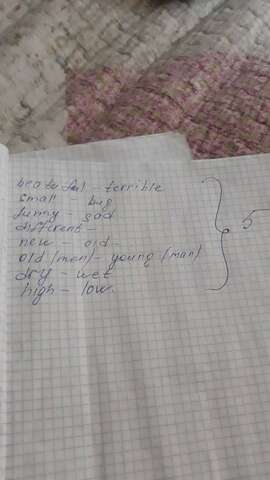 beatuful - terrible
small bug
funny - sad
different -
new - old
old (men) - young (man)
dry - wet
high - low
5